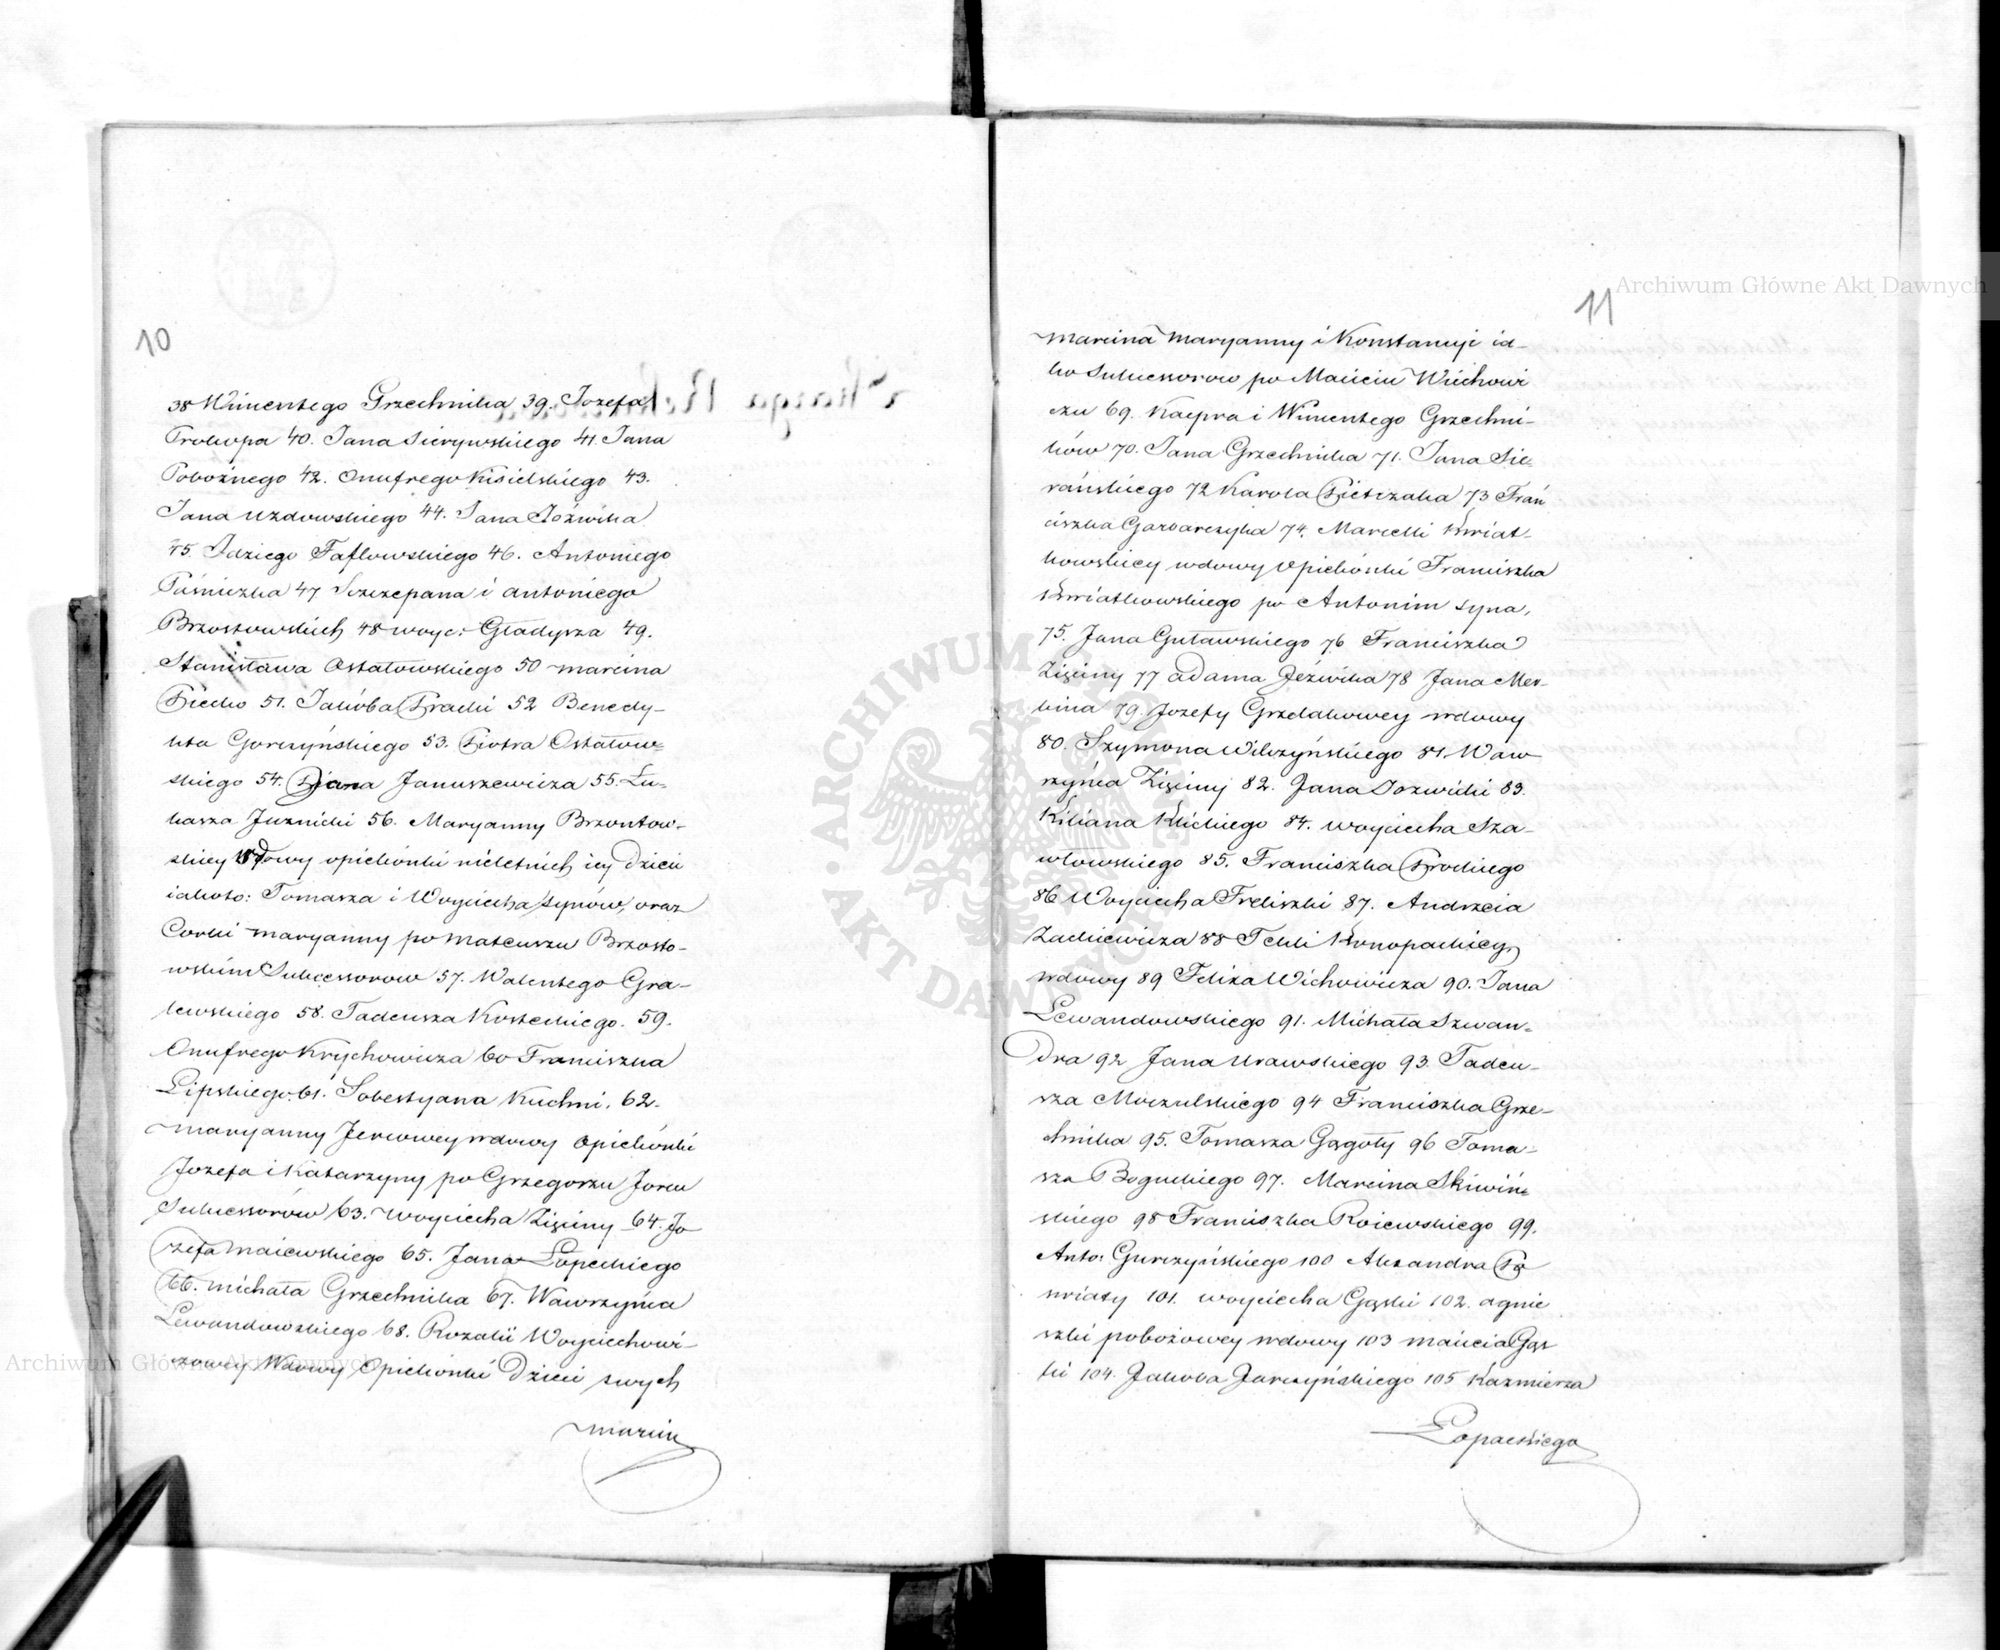 10
38 Wincentego Grzechnika 39. Jozefa
Prokopa 40. Jana Sierywskiego 41. Jana
Pobożnego 42. Onufrego Kisielskiego 43.
Jana Uzdowskiego 44. Jana Joźwika
45. Idziego Faflowskiego 46. Antoniego
Paśniczka 47 Szczepana i antoniego
Brzostowskich 48 woyc: Gładysza 49.
Stanisława Ostałowskiego 50 marcina
Piecho 51. Jakóba Pracki 52 Benedy-
kta Gorczyńskiego 53. Piotra Ostałow=
skiego 54. Jana Januszewicza 55. Łu-
kasza Juznicki 56. Maryanny Brzontow-
skiey Wdowy opiekónki nieletnich iey Dzieci
iakoto: Tomasza i Woyciecha synów, oraz
Corki maryanny po Mateuszu Brzosto-
wskim Sukcessorow 57. Walentego Gra-
lewskiego 58. Tadeusza Kosteckiego. 59.
Onufrego Krychowicza 60 Franciszka
Lipskiego. 61. Sobestyana Kuchni. 62.
maryanny Jercowey wdowy opiekónki
Jozefa i Katarzyny po Grzegorzu Jorcu
Sukcessorów 63. Woyciecha Zięciny 64. Jo
zefa maiewskiego 65. Jana Łopeckiego
66. michała Grzechnika 67. Wawrzyńca
Lewandowskiego 68. Rozalii Woyciechowi-
czowey Wdowy Opiekónki Dzieci swych
marcin
11
Marcina Maryanny i Konstancyi ia-
ko Sukcessorow po Macieiu Wiechowi
czu 69. Kacpra i Wincentego Grzechni-
ków 70. Jana Grzechnika 71. Jana Sie-
rańskiego 72 Karola Pietrzaka 73 Fran
ciszka Garbarczyka 74. Marcelli Kwiat-
kowskiey wdowy opiekónki Franciszka
Kwiatkowskiego po Antonim syna,
75. Jana Gutawskiego 76 Franciszka
Zięciny 77 adama Jeźwika 78 Jana Mer-
kina 79. Jozefy Grzelakowey wdowy
80. Szymona Wilczyńskiego 81. Waw
rzyńca Zięciny 82. Jana Jozwicki 83.
Kiliana Klickiego 84. woyciecha Sza-
włowskiego 85. Franciszka Prockiego
86 Woyciecha Freliszki 87. Andrzeia
Zackiewicza 88 Tekli Konopackiey
wdowy 89 Felixa Wichowicza 90. Jana
Lewandowskiego 91. Michała Szwan-
dra 92 Jana Urawskiego 93. Tadeu-
sza Moczulskiego 94 Franciszka Grze-
chnika 95. Tomasza Gągoły 96 Toma-
sza Boguckiego 97. Marcina Skiwiń-
skiego 98 Franciszka Roiewskiego 99.
Anto: Gurczyńskiego 100 Alexandra Po
wiaty 101. woyciecha Gąski 102. agnie
szki pobożowey wdowy 103 macieia Gąs
ki 104. Jakoba Jarczyńskiego 105 Kazmierza
Łopackiego
Archiwum Główne Akt Dawnych
Archiwum Główne Akt Dawnych
ARCHIWUM GŁÓWNE AKT DAWNYCH